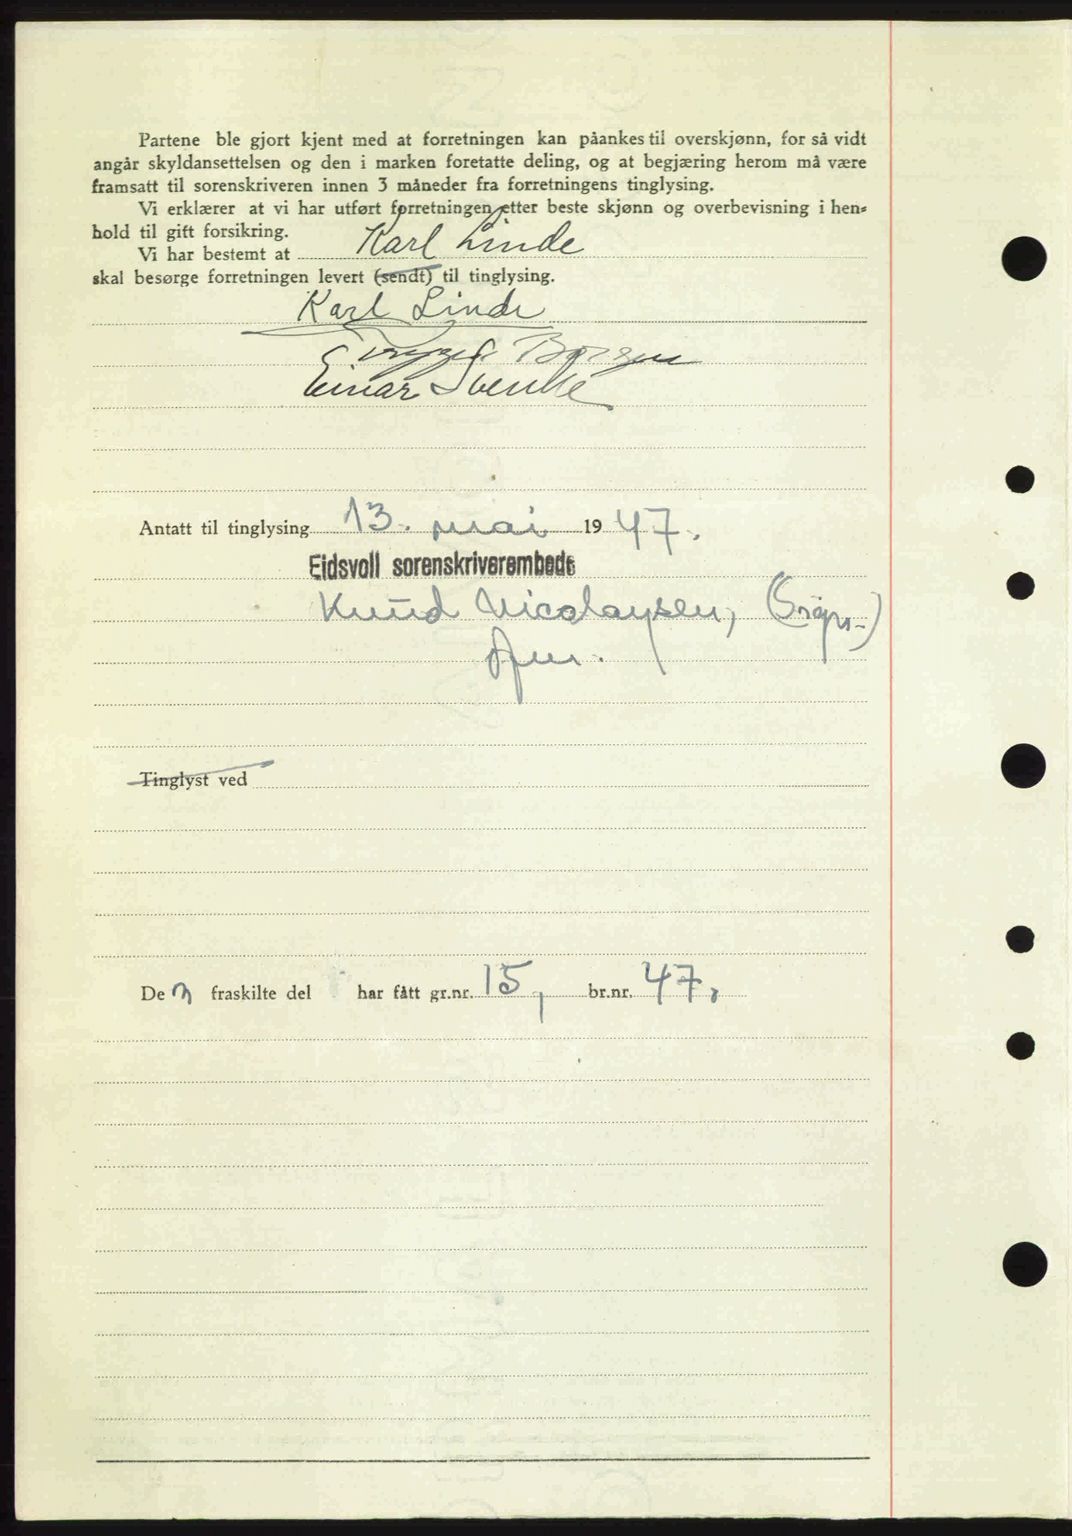 Partene ble gjort kjent med at forretningen kan påankes til overskjønn, for så vidt
angår skyldansettelsen og den i marken foretatte deling, og at begjæring herom må være
framsatt til sorenskriveren innen 3 måneder fra forretningens tinglysing.
Vi erklærer at vi har utført forretningen etter beste skjønn og overbevisning i hen=
hold til gitt forsikring.
Vi har bestemt at Karl Linde
skal besørge forretningen levert (sendt) til tinglysing.
Karl Linde
Einar
Antatt til tinglysing 13. mai 1947.
Eidsvoll sorenskriverembede
Knud Nicolaysen, (Sign.)
Tinglyst ved
Den fraskilte del har fått gr.nr. 15, br.nr. 47.